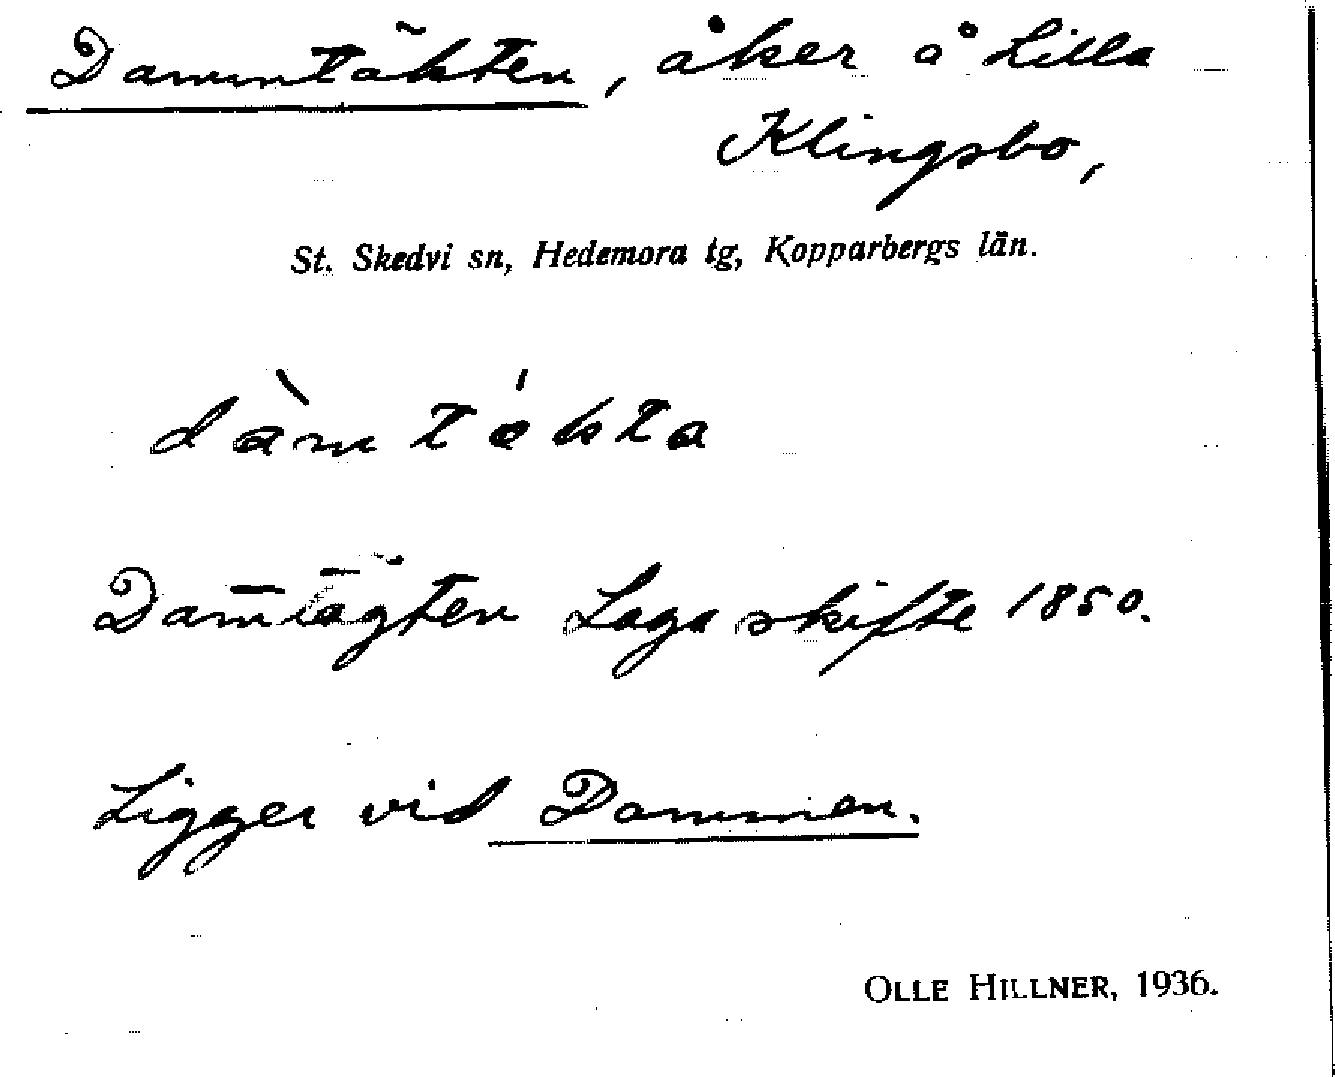 Dammtäkten, åker å Lilla
Klingsbo,
St. Skedvi sn, Hedemora tg, Kopparbergs län.
Dam̄tägten Laga skifte 1850.
Ligger vid Dammen.
OLLE HILLNER, 1936.